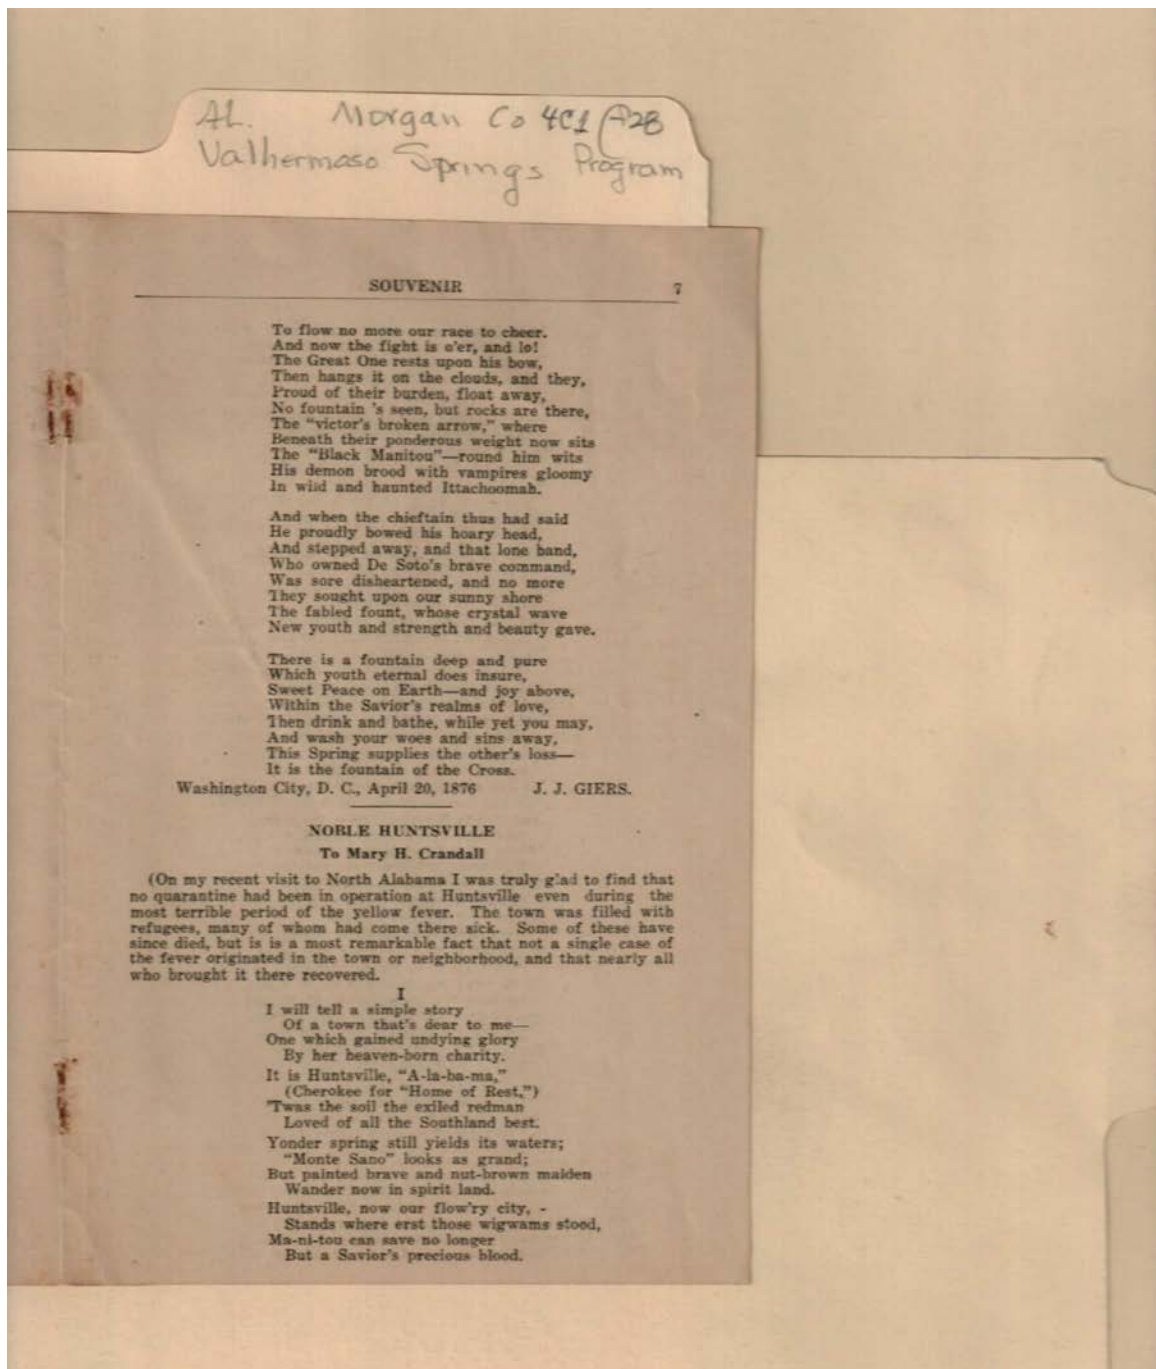 AL. Morgan Co 4C1 P28
Valhermaso Springs Program
SOUVENIR 7
To flow no more our race to cheer.
And now the fight is o'er, and lo!
The Great One rests upon his bow,
Then hangs it on the clouds, and they,
Proud of their burden, float away,
No fountain 's seen, but rocks are there,
The "victor's broken arrow," where
Beneath their ponderous weight now sits
The "Black Manitou"—round him wits
His demon brood with vampires gloomy
In wild and haunted Ittachoomah.
And when the chieftain thus had said
He proudly bowed his hoary head,
And stepped away, and that lone band,
Who owned De Soto's brave command,
Was sore disheartened, and no more
They sought upon our sunny shore
The fabled fount, whose crystal wave
New youth and strength and beauty gave.
There is a fountain deep and pure
Which youth eternal does insure,
Sweet Peace on Earth—and joy above,
Within the Savior's realms of love,
Then drink and bathe, while yet you may,
And wash your woes and sins away,
This Spring supplies the other's loss—
It is the fountain of the Cross.
Washington City, D. C., April 20, 1876 J. J. GIERS.
NOBLE HUNTSVILLE
To Mary H. Crandall
(On my recent visit to North Alabama I was truly glad to find that
no quarantine had been in operation at Huntsville even during the
most terrible period of the yellow fever. The town was filled with
refugees, many of whom had come there sick. Some of these have
since died, but is is a most remarkable fact that not a single case of
the fever originated in the town or neighborhood, and that nearly all
who brought it there recovered.
I
I will tell a simple story
Of a town that's dear to me—
One which gained undying glory
By her heaven-born charity.
It is Huntsville, "A-la-ba-ma,"
(Cherokee for "Home of Rest,")
'Twas the soil the exiled redman
Loved of all the Southland best.
Yonder spring still yields its waters;
"Monte Sano" looks as grand;
But painted brave and nut-brown maiden
Wander now in spirit land.
Huntsville, now our flow'ry city, -
Stands where erst those wigwams stood,
Ma-ni-tou can save no longer
But a Savior's precious blood.